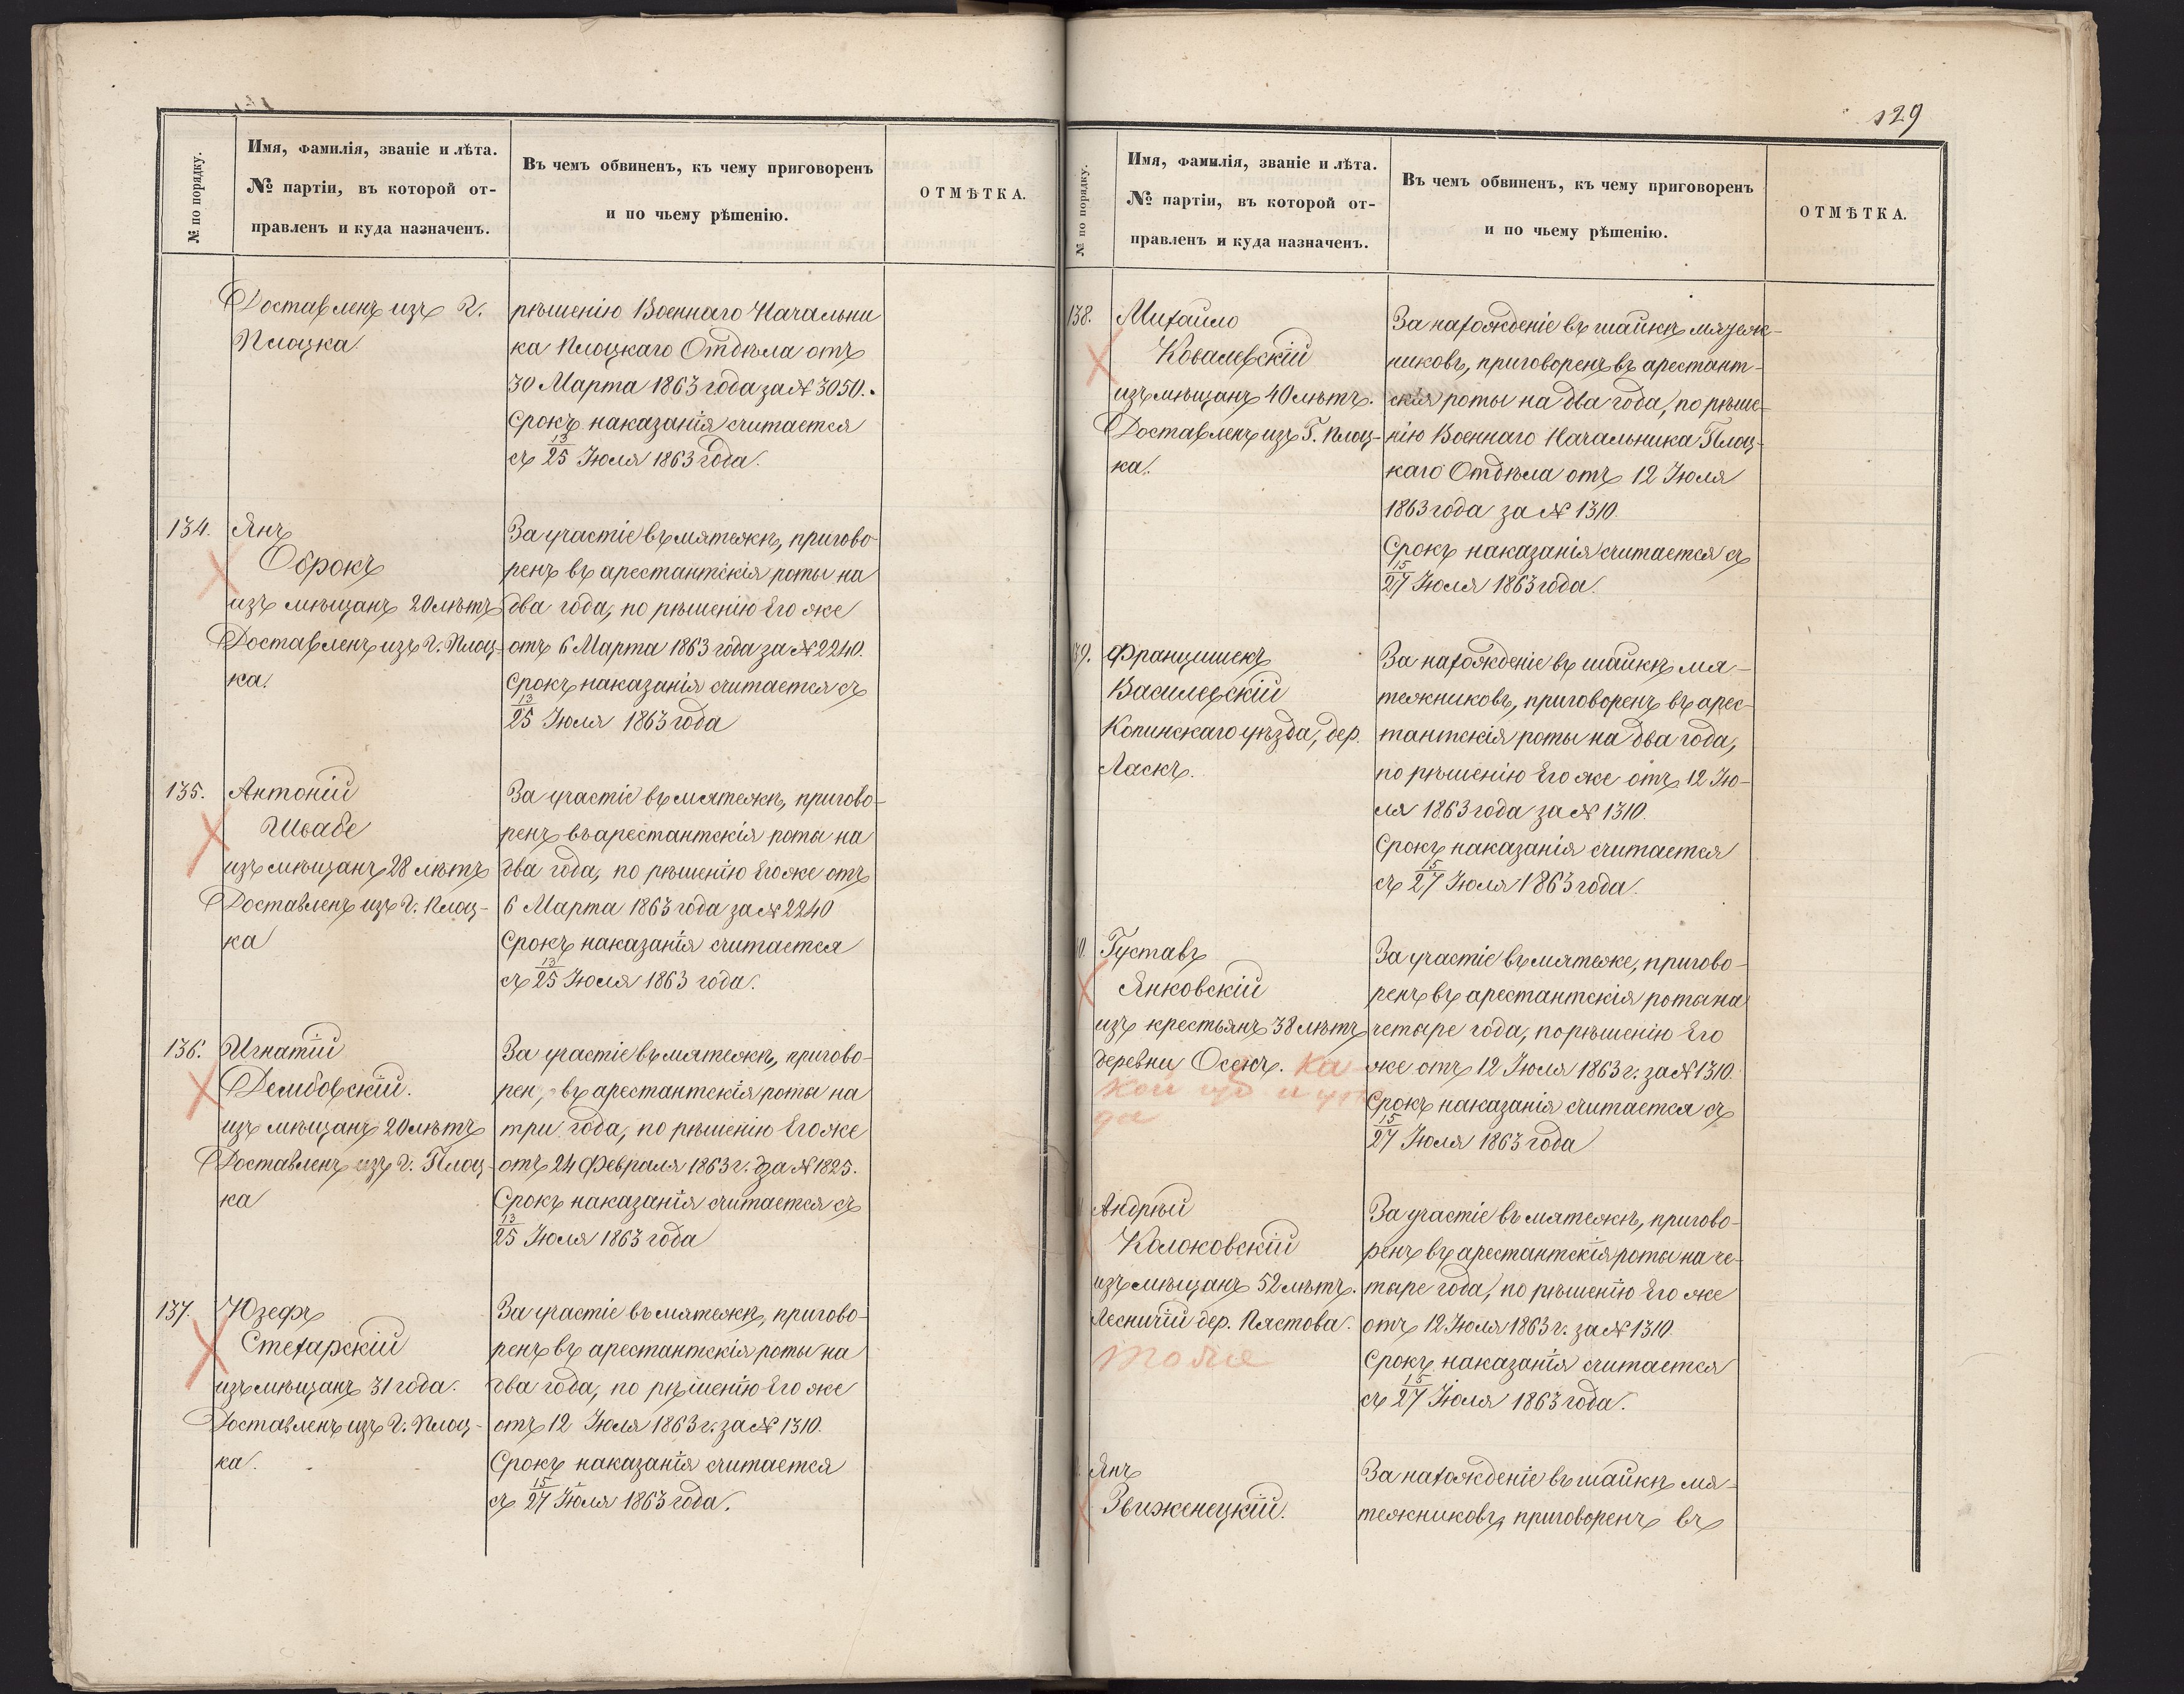 № по порядку.
Имя, фамилія, званіе и лѣта.
№ партіи, въ которой от-
правленъ и куда назначенъ.
Въ чемъ обвиненъ, къ чему приговоренъ
и по чьему рѣшенію.
ОТМѢТКА.
Доставленъ изъ г.
Плоцка.
рѣшенію Военнаго Начальни
ка Плоцкаго Отдѣла отъ
30 Марта 1863 года за № 3050.
Срокъ наказанія считается
съ 13/25 Іюля 1863 года.
134.
Янъ
Оброкъ
изъ мѣщанъ 20 лѣтъ
Доставленъ изъ г. Плоц-
ка.
За участіе въ мятежѣ, пригово-
ренъ въ арестантскія роты на
два года, по рѣшенію Его же
отъ 6 Марта 1863 года за № 2240.
Срокъ наказанія считается съ
13/25 Іюля 1863 года
135.
Антоній
Швабе
изъ мѣщанъ 28 лѣтъ
Доставленъ изъ г. Плоц-
ка
За участіе въ мятежѣ, пригово-
ренъ въ арестантскія роты на
два года, по рѣшенію Его же отъ
6 Марта 1863 года за № 2240
Срокъ наказанія считается
съ 13/25 Іюля 1863 года.
136.
Игнатій
Дембовскій.
изъ мѣщанъ 20 лѣтъ
Доставленъ изъ г. Плоц-
ка
За участіе въ мятежѣ, пригово-
рен, въ арестантскія роты на
три года, по рѣшенію Его же
отъ 24 Февраля 1863 г. за № 1825.
Срокъ наказанія считается съ
13/25 Іюля 1863 года
137.
Юзефъ
Стехарскій
изъ мѣщанъ 31 года.
Доставленъ изъ г. Плоц-
ка.
За участіе въ мятежѣ, пригово-
ренъ въ арестантскія роты на
два года, по рѣшенію Его же
отъ 12 Іюля 1863 г. за № 1310.
Срокъ наказанія считается
съ 15/27 Іюля 1863 года.
129
№ по порядку.
Имя, фамилія, званіе и лѣта.
№ партіи, въ которой от-
правленъ и куда назначенъ.
Въ чемъ обвиненъ, къ чему приговоренъ
и по чьему рѣшенію.
ОТМѢТКА.
138.
Михайло
Ковалевскій
изъ мѣщанъ 40 лѣтъ.
Доставленъ изъ Г. Плоц-
ка.
За нахожденіе въ шайкѣ мятеж-
никовъ, приговоренъ въ арестант-
скія роты на два года, по рѣше-
нію Военнаго Начальника Плоц-
каго Отдѣла отъ 12 Іюля
1863 года за № 1310.
Срокъ наказанія считается съ
15/27 Іюля 1863 года.
39.
Францишекъ
Василевскій
Копинскаго уѣзда, дер.
Ласкъ.
За нахожденіе въ шайкѣ мя-
тежниковъ, приговоренъ въ арес-
тантскія роты на два года,
по рѣшенію Его же отъ 12 Ію-
ля 1863 года за № 1310.
Срокъ наказанія считается
съ 15/27 Іюля 1863 года.
0.
Густавъ
Янковскій
изъ крестьянъ 38 лѣтъ
деревни Осекъ. ка-
кой губ и уѣз
да
За участіе въ мятеже, пригово-
ренъ въ арестантскія роты на
четыре года, по рѣшенію Его
же отъ 12 Іюля 1863 г. за № 1310.
Срокъ наказанія считается съ
15/27 Іюля 1863 года
Андрей
Колоковскій
изъ мѣщанъ 52 лѣтъ.
Лесничій дер. Пястова.
тоже
За участіе въ мятежѣ, пригово-
ренъ въ арестантскія роты на че-
тыре года, по рѣшенію Его же
отъ 12 Іюля 1863 г. за № 1310.
Срокъ наказанія считается
съ 15/27 Іюля 1863 года.
Янъ
Звиженецкій.
За нахожденіе въ шайкѣ мя-
тежниковъ, приговоренъ въ